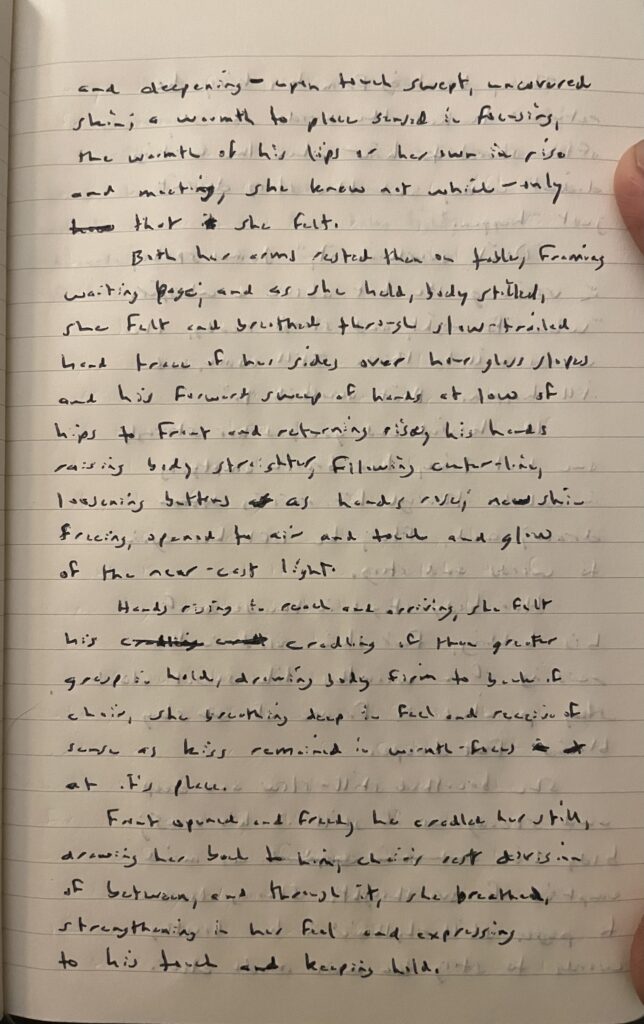 and deepening – upon touch swept, uncovered
skin; a warmth to place sensed in focusing,
the warmth of his lips or her own in rise
and meeting, she knew not which – only
that she felt.
Both her arms rested then on table, framing
waiting page; and as she held, body stilled,
she felt and breathed through slow-trailed
hand trace of her sides over hourglass slopes
and his forward sweep of hands at low of
hips to front and returning rise, his hands
raising body straighter, following center-line,
loosening buttons as hands rose; new skin
freeing, opened to air and touch and glow
of the near-cast light.
Hands rising to reach and arriving, she felt
his cradling of them greater
grasp in hold, drawing body firm to back of
chair, she breathing deep in feel and receive of
sense as kiss remained in warmth-focus
at it's place.
Front opened and freed, he cradled her still,
drawing her back to him, chair's rest division
of between, and through it, she breathed,
strengthening in her feel and expressing
to his touch and keeping hold.